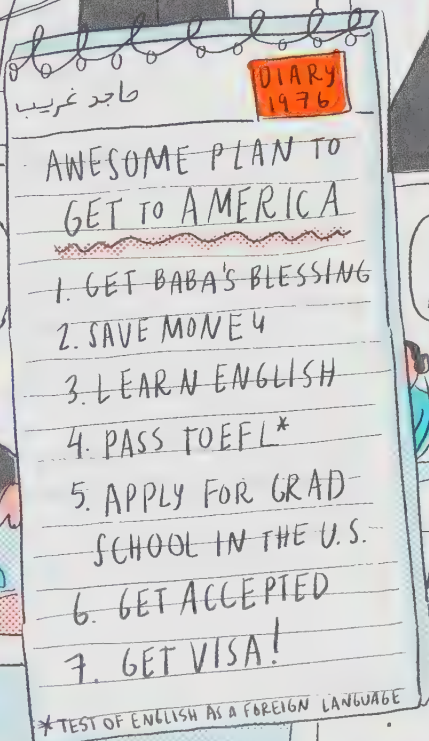 DIARY
1976
ماجد غريب
AWESOME PLAN TO
GET TO AMERICA
1. GET BABA'S BLESSING
2. SAVE MONEY
3. LEARN ENGLISH
4. PASS TOEFL*
5. APPLY FOR GRAD
SCHOOL IN THE U.S.
6. GET ACCEPTED
7. GET VISA!
* TEST OF ENGLISH AS A FOREIGN LANGUAGE